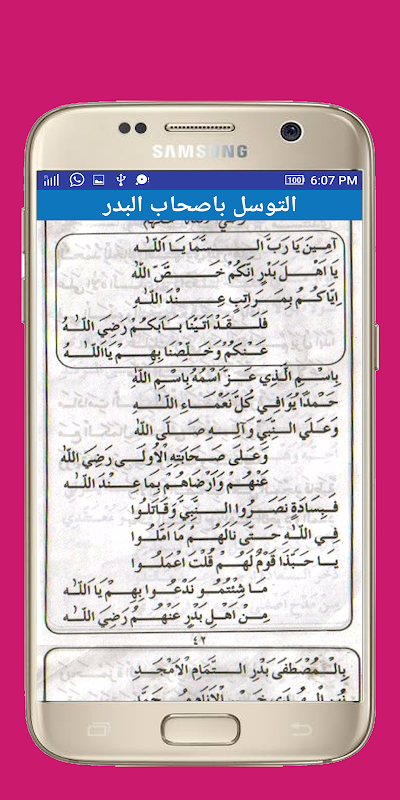 SAMSUNG
100 6:07 PM
التوسل باصحاب البدر
اٰمِينَ يَا رَبَّ الـسَّمَا يَـا اَللّٰـه
يَا اَهْـلَ بَدْرٍ اِنَّكُمْ خَصَّ اللّٰه
اِيَّاكُمْ بِمَـرَاتِبٍ عِـنْدَ اللّٰه
فَلَـقَدْ اَتَيْنَا بَـابَكُمْ رَضِيَ اللّٰـه
عَـنْكُمْ وَخَلِّصْنَا بِهِـمْ يَااَللّٰـه
بِاسْمِ الَّذِي عَـزَّ اسْمُهُ بِاسْمِ اللّٰه
حَمْدًا يُوَافِي كُلَّ نَعْمَـاءِ اللّٰـه
وَعَلَى النَّبِيِّ وَآلِـهِ صَـلَّى اللّٰه
وَعَلَى صَحَابَتِهِ الْاُولَـى رَضِيَ اللّٰه
عَنْهُمْ وَاَرْضَاهُمْ بِمَا عِنْدَ اللّٰـه
فَبِسَادَةٍ نَصَـرُوا الـنَّبِيَّ وَقَـاتَلُوا
فِي اللّٰهِ حَتَّى نَالَهُـمْ مَا اَمَـلُوا
يَـا حَبَّذَا قَوْمٌ لَهُـمْ قُلْتَ اعْمَلُوا
مَـا شِئْتُمُو نَدْعُـوا بِهِـمْ يَا اَللّٰـه
مِـنْ اَهْـلِ بَدْرٍ عَنْهُـمُو رَضِيَ اللّٰـه
٤٢
بِالْـمُصْطَفَى بَدْرِ الـتَّمَامِ الْاَمْجَـدِ